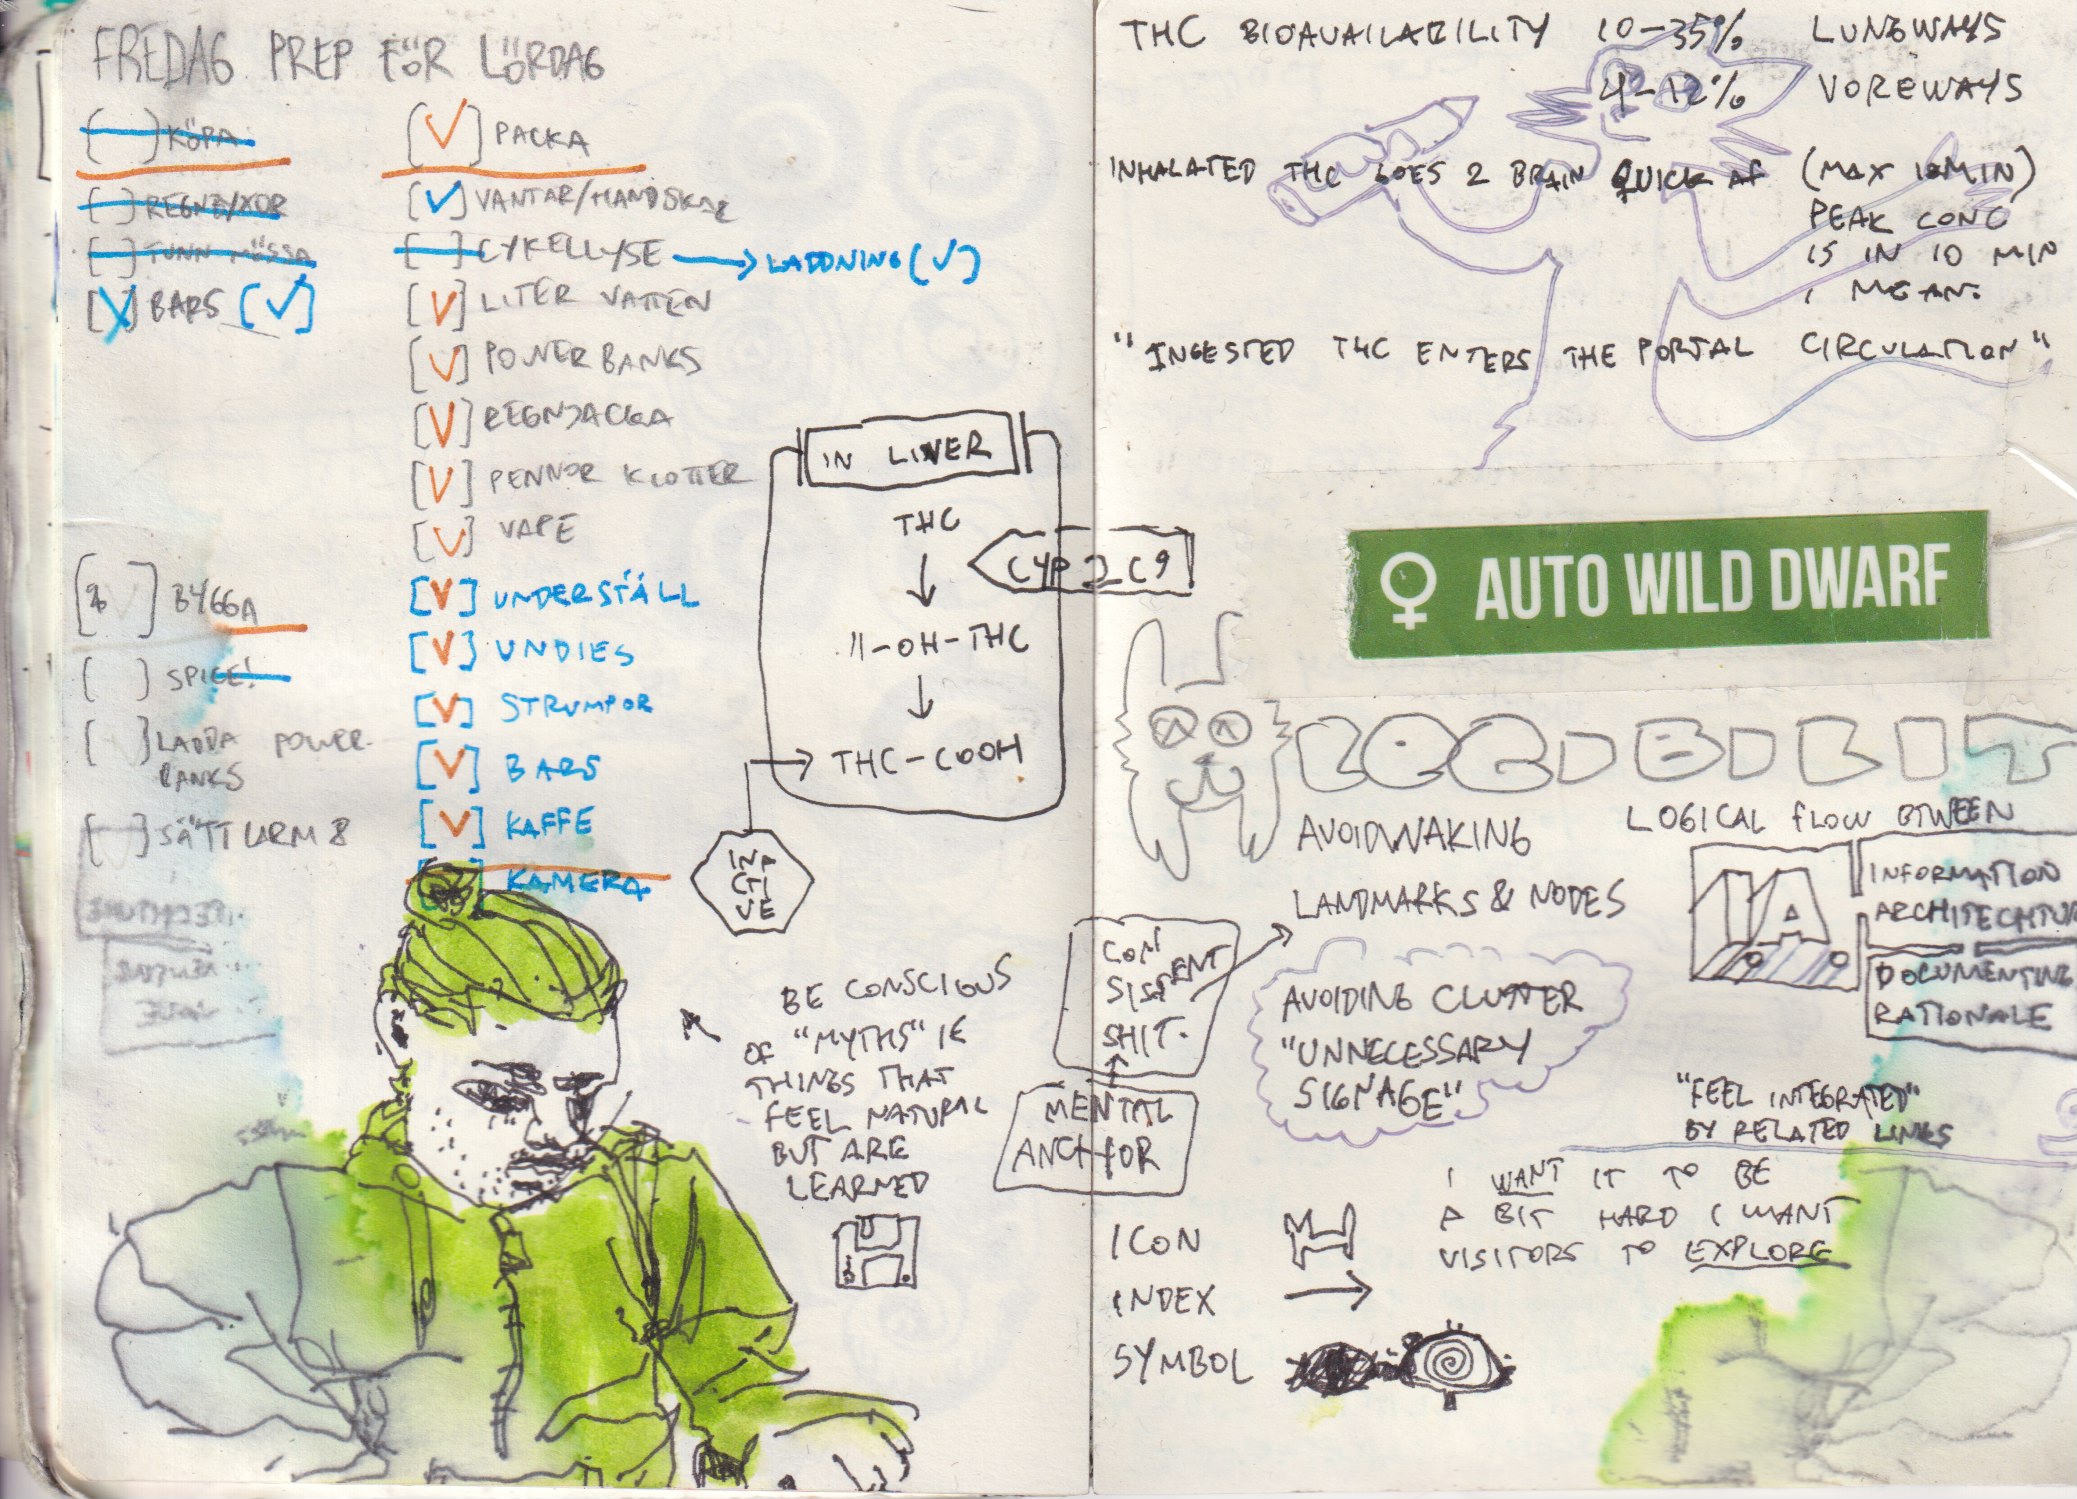 FREDAG PREP FÖR LÖRDAG
[ ] KÖPA
[ ] REGNBYXOR
[ ] TUNN MÖSSA
[X] BARS [✓]
[✓] PACKA
[✓] VANTAR/HANDSKAR
[ ] CYKELLYSE → LADDNING [✓]
[V] LITER VATTEN
[V] POWERBANKS
[V] REGNJACKA
[V] PENNOR KLOTTER
[V] VAPE
[V] UNDERSTÄLL
[V] UNDIES
[V] STRUMPOR
[V] BARS
[V] KAFFE
KAMERA
[ ] BYGGA
[ ] SPICE!
[ ] LADDA POWER-
BANKS
[ ] SÄTT LARM 8
IN LIVER
THC
↓
CYP2C9
11-OH-THC
↓
THC-COOH
INA
CTI
VE
BE CONSCIOUS
OF "MYTHS" IE
THINGS THAT
FEEL NATURAL
BUT ARE
LEARNED
THC BIOAVAILABILITY 10-35% LUNGWAYS
4-12% VOREWAYS
INHALATED THC GOES 2 BRAIN QUICK AF (MAX 10MIN)
PEAK CONC
IS IN 10 MIN
I MEAN.
"INGESTED THC ENTERS THE PORTAL CIRCULATION"
♀ AUTO WILD DWARF
LEGIBILIT
AVOIDWAKING
LANDMARKS & NODES
LOGICAL FLOW BTWEEN
IA
INFORMATION
ARCHITECHTUR
DOCUMENTING
RATIONALE
CON
SISTENT
SHIT.
MENTAL
ANCHOR
AVOIDING CLUTTER
"UNNECESSARY
SIGNAGE"
"FEEL INTEGRATED"
BY RELATED LINKS
I WANT IT TO BE
A BIT HARD I WANT
VISITORS TO EXPLORE
ICON
INDEX →
SYMBOL